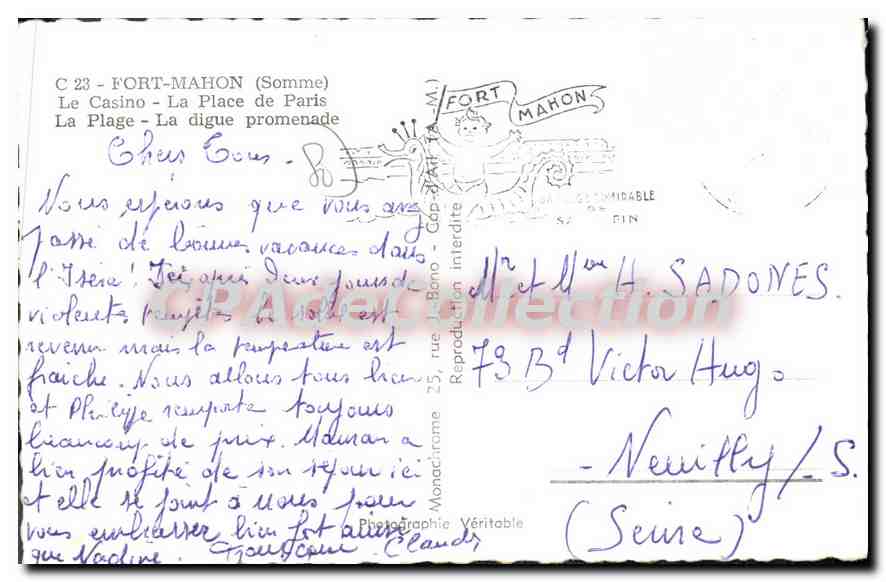 C 23 - FORT-MAHON (Somme)
Le Casino - La Place de Paris
La Plage - La digue promenade
Chers Tous -
Nous espérons que vous avez
passé de bonnes vacances dans
l'Isère! Ici, après deux jours de
violentes tempêtes le soleil est
revenu mais la température est
fraîche. Nous allons tous bien
et Philippe remporte toujours
beaucoup de prix. Maman a
bien profité de son séjour ici
et elle se joint à nous pour
vous embrasser bien fort ainsi
que Nadine. Claude
FORT MAHON
Monachrome 25, rue Le Bono - Cap-d'Ail (A.-M.)
Reproduction interdite
Photographie Véritable
CPA de Collection
Mr et Mme H. SADONES.
79 Bd Victor Hugo
- Neuilly/S.
(Seine)